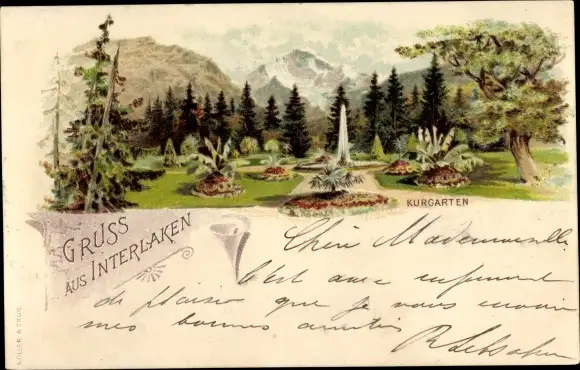 KURGARTEN
GRUSS
AUS INTERLAKEN
Chère Mademoiselle
C'est avec infiniment
de plaisir que je vous envoie
mes bonnes amitiés